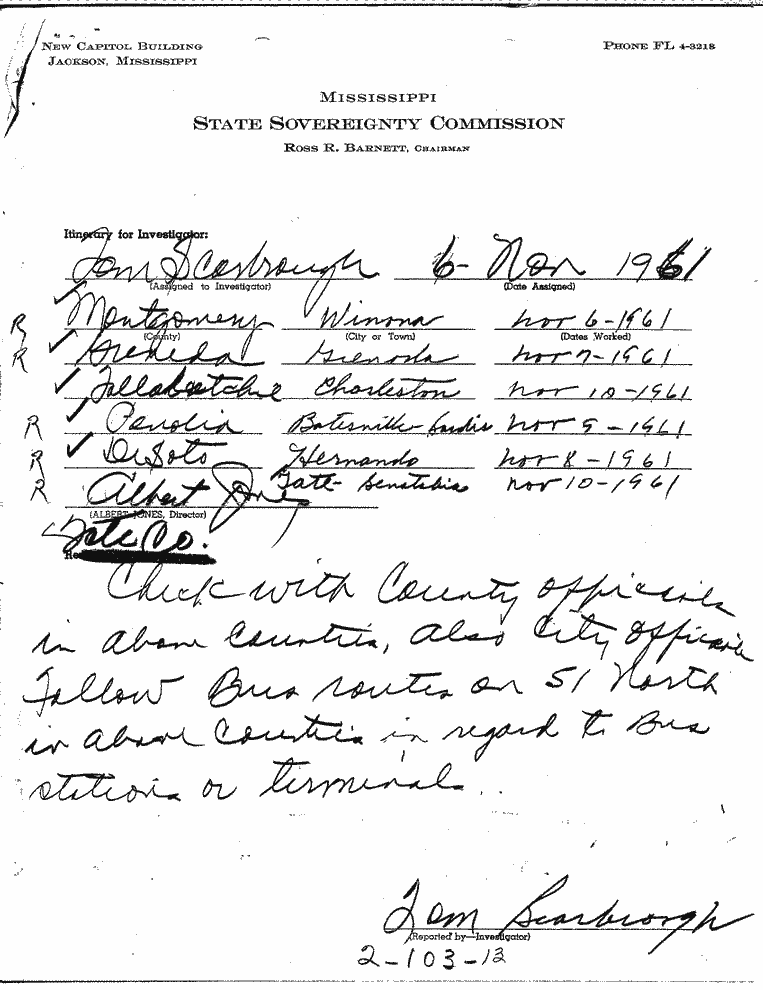 NEW CAPITOL BUILDING PHONE FL 4-3218
JACKSON, MISSISSIPPI
MISSISSIPPI
STATE SOVEREIGNTY COMMISSION
ROSS R. BARNETT, CHAIRMAN
Itinerary for Investigator:
Tom Scarbrough 6- Nov 1961
(Assigned to Investigator) (Date Assigned)
R ✓ Montgomery Winona Nov 6-1961
(County) (City or Town) (Dates Worked)
R ✓ Grenada Grenada Nov 7-1961
✓ Tallahatchie Charleston Nov 10-1961
R ✓ Panola Batesville-Sardis Nov 9-1961
R ✓ DeSoto Hernando Nov 8-1961
R Albert Jones Tate- Senatobia Nov 10-1961
(ALBERT JONES, Director)
Tate Co.
Check with County officials
in above Counties, Also City Officials
Follow Bus routes on 51 North
in above Counties in regard to Bus
stations or terminals.
Tom Scarbrough
(Reported by—Investigator)
2-103-13